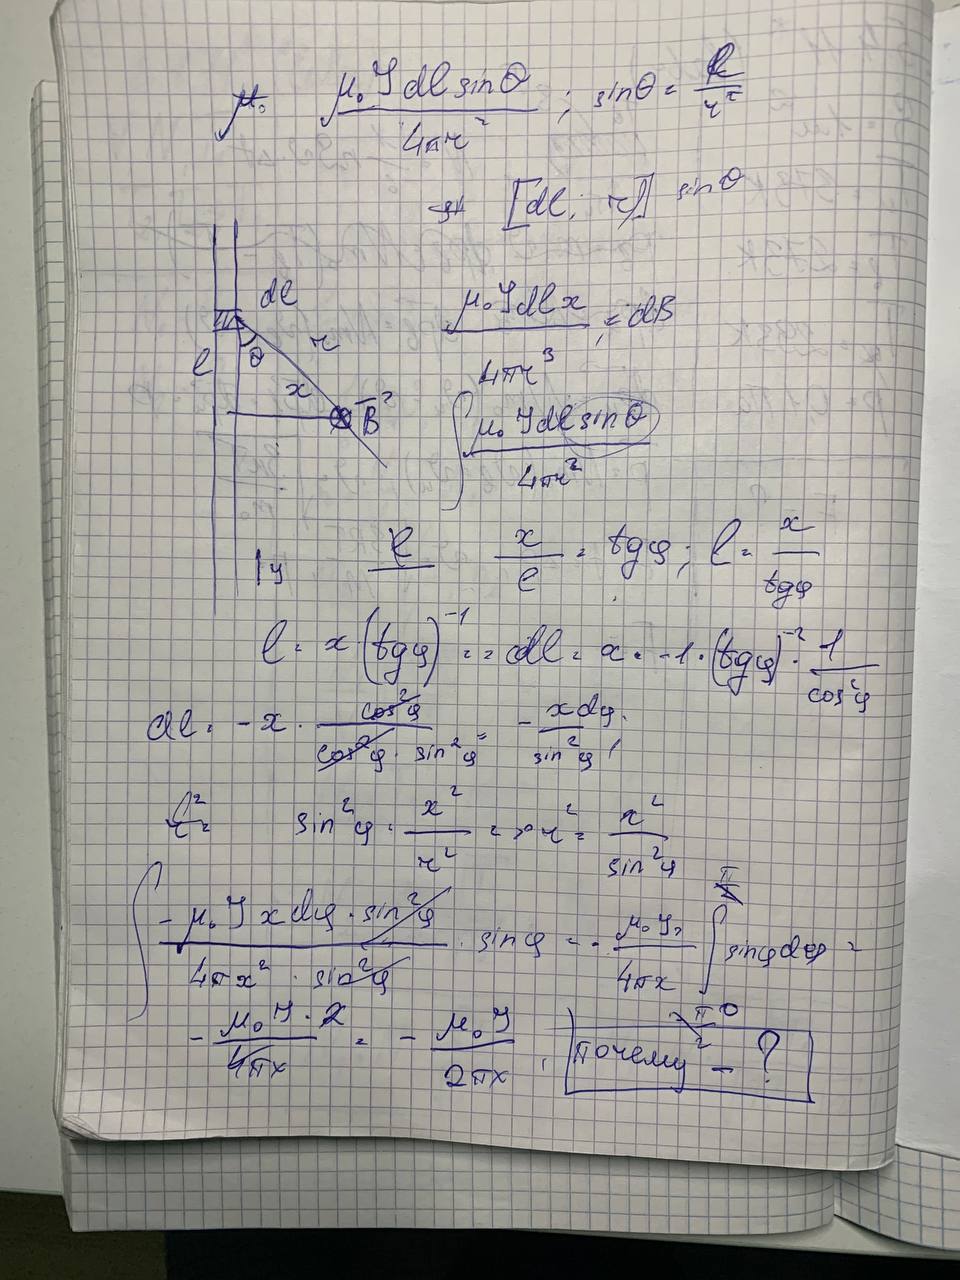 μ₀ μ₀ I dl sinθ / 4πr² ; sinθ = k / r²
[dl ; r] sinθ
dl
θ
l
r
x
B²
μ₀ I dl x / 4πr³ = dB
∫ μ₀ I dl sinθ / 4πr²
y
l
x / l = tgφ ; l = x / tgφ
l = x (tgφ)⁻¹ = = dl = x · -1 · (tgφ)⁻² · 1 / cos²φ
dl = -x · cos²φ / cos²φ · sin²φ = - x dφ / sin²φ ;
r² =
sin²φ = x² / r² => r² = x² / sin²φ
∫ -μ₀ I x dφ · sin²φ / 4πx² · sin²φ · sinφ = - μ₀ I / 4πx ∫₀^π sinφ dφ =
- μ₀ I · 2 / 4πx = - μ₀ I / 2πx ,
почему - ?